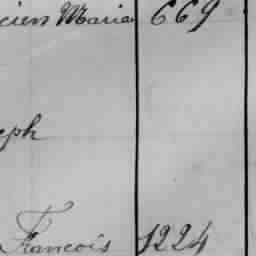 ciers Maria 669
eph
Francois 1224